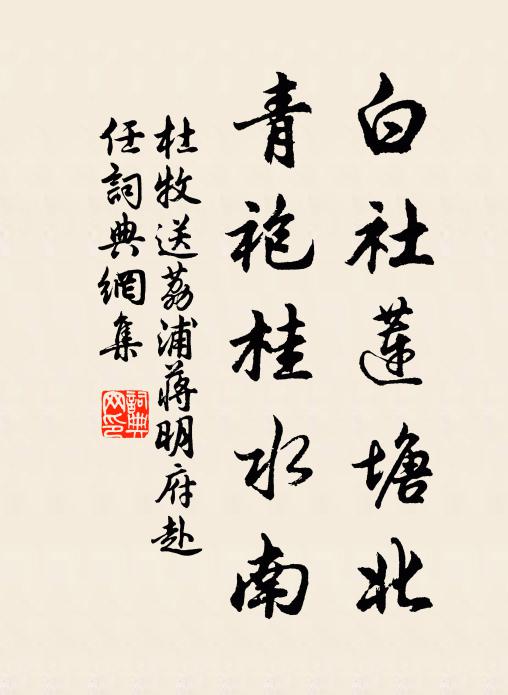 白社蓮塘北
青袍桂水南
杜牧送荔浦蔣明府赴
任詞典網集
詞典
網印